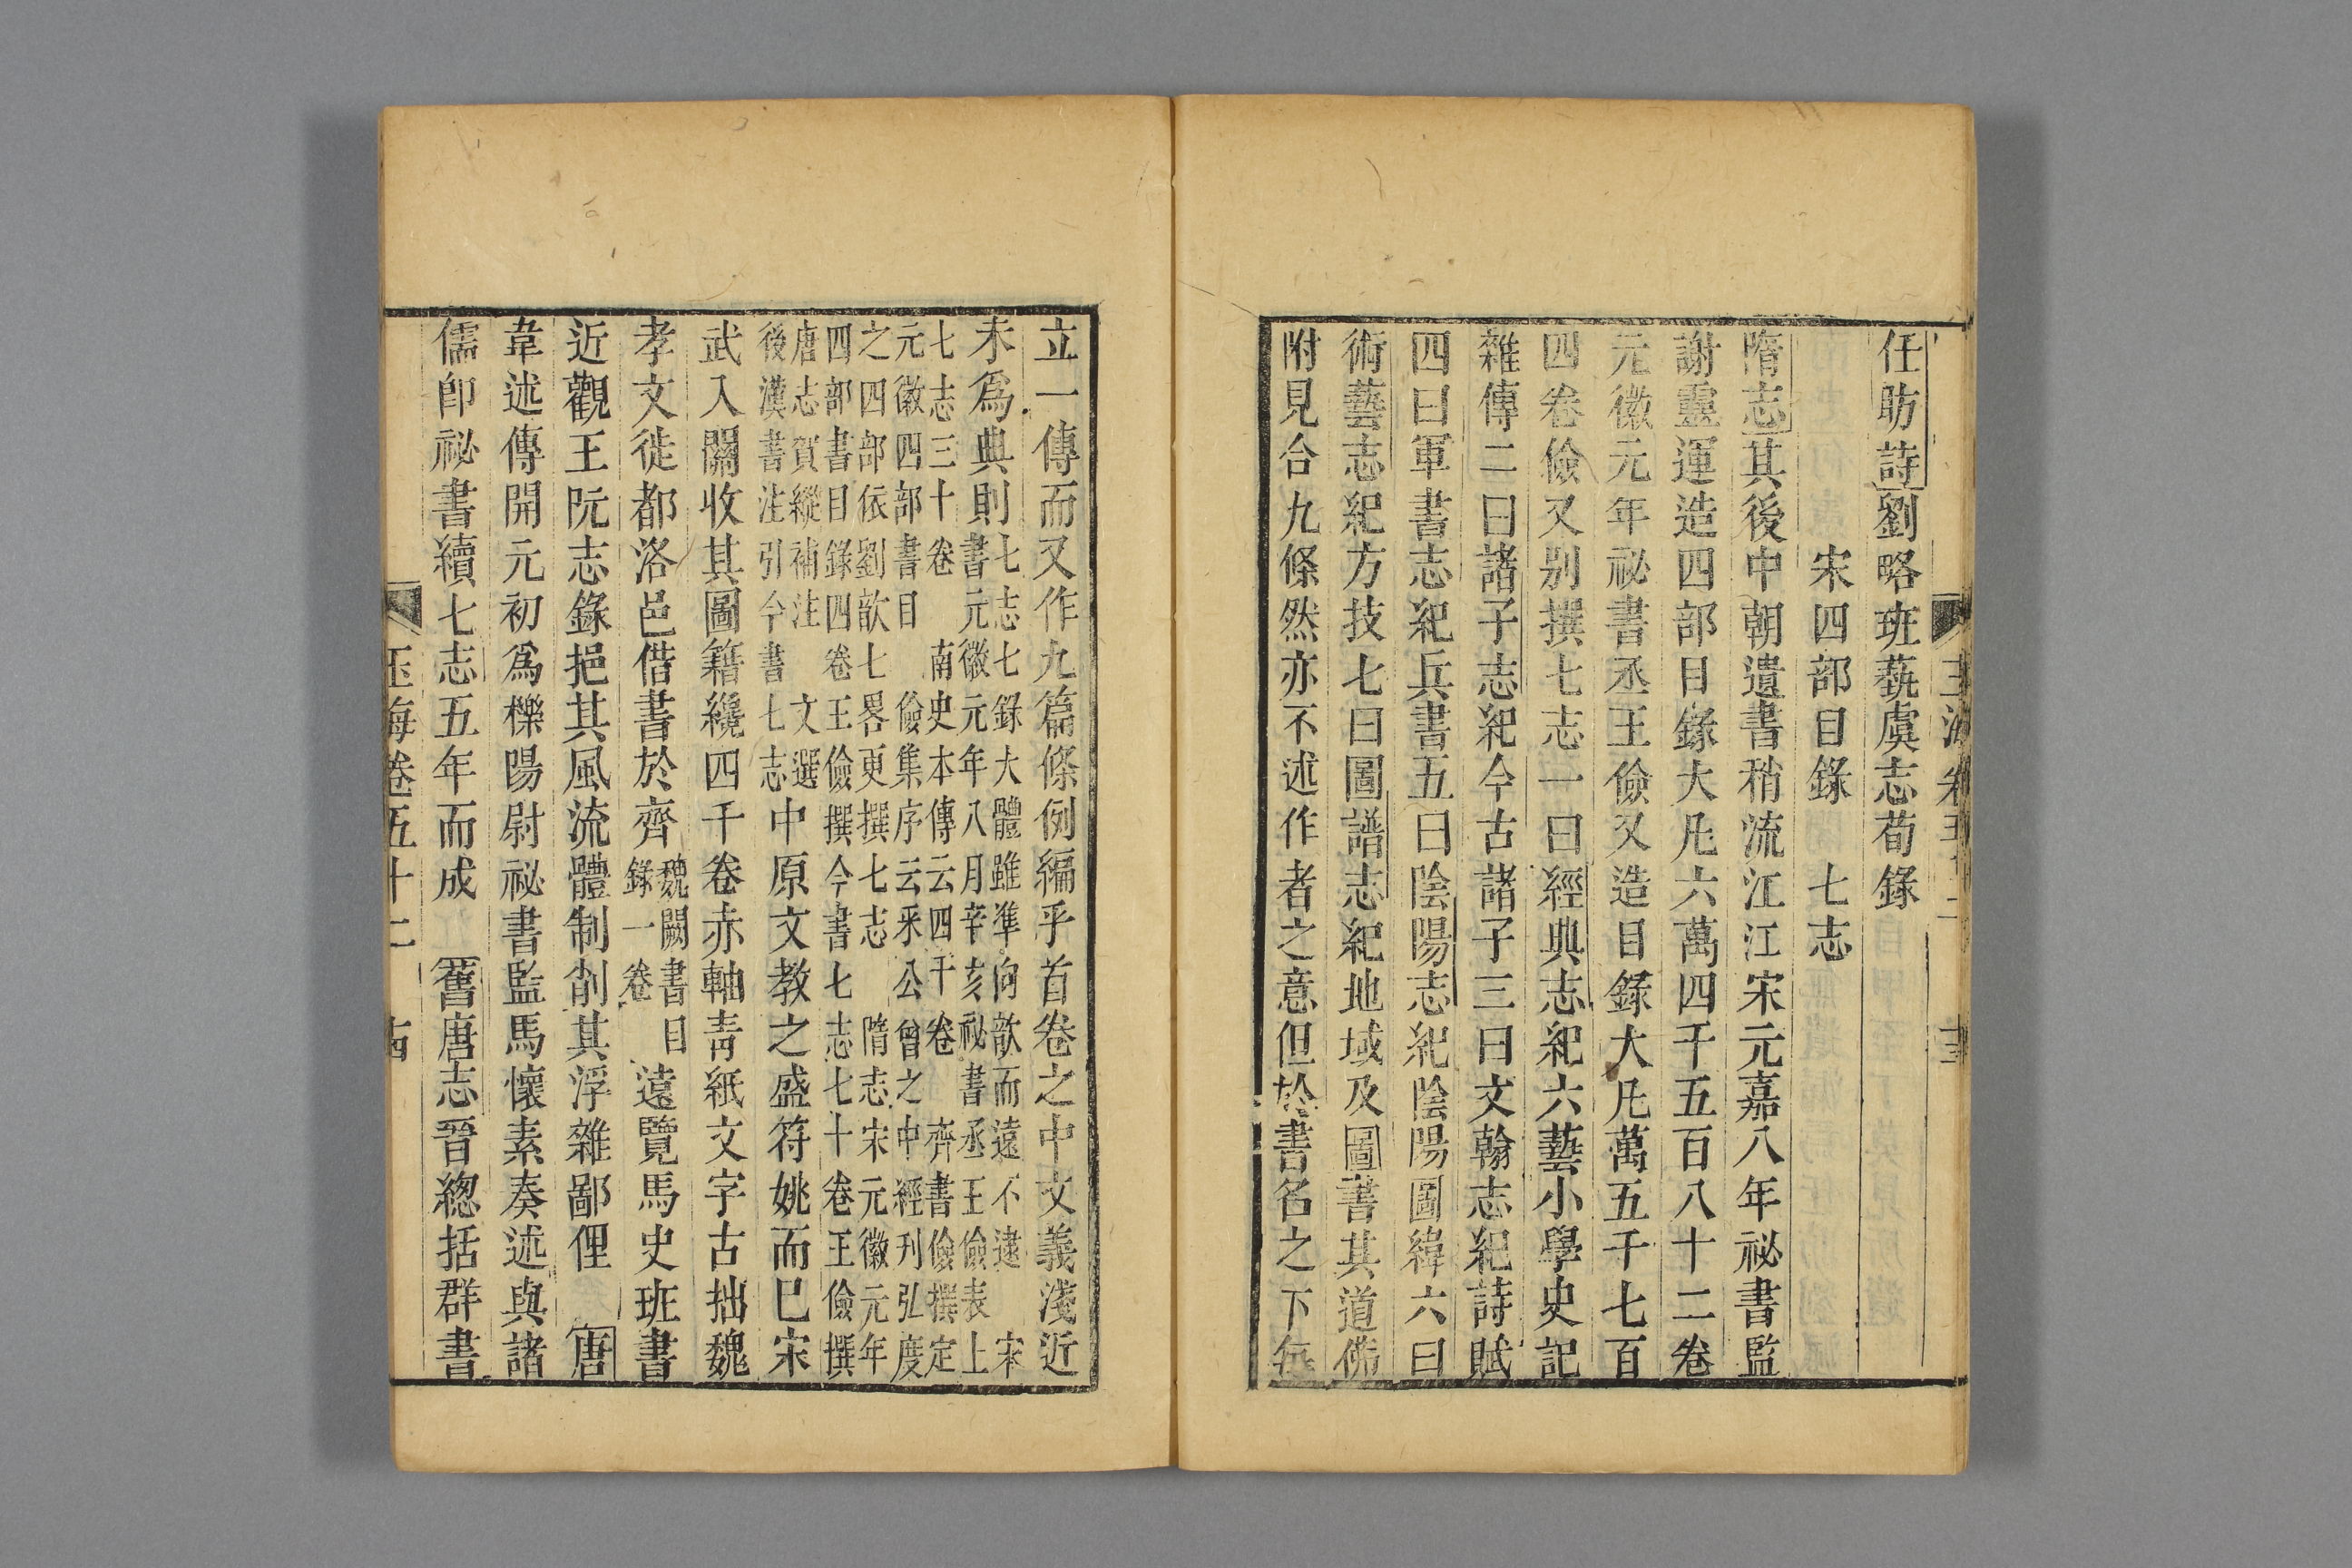 玉海卷五十二 十三
任昉詩劉略班蓺虞志荀錄
宋四部目錄 七志
隋志其後中朝遺書稍流江江宋元嘉八年祕書監
謝靈運造四部目錄大凡六萬四千五百八十二卷
元徽元年祕書丞王儉又造目錄大凡萬五千七百
四卷儉又别撰七志一曰經典志紀六藝小學史記
雜傳二曰諸子志紀今古諸子三曰文翰志紀詩賦
四曰軍書志紀兵書五曰陰陽志紀陰陽圖緯六曰
術藝志紀方技七曰圖譜志紀地域及圖書其道佛
附見合九條然亦不述作者之意但於書名之下每
立一傳而又作九篇條例編乎首卷之中文義淺近
未爲典則
七志七錄大體雖準向歆而遠不逮 宋
書元徽元年八月辛亥祕書丞王儉表上
七志三十卷 南史本傳云四千卷 齊書儉撰定
元徽四部書目 儉集序云釆公曾之中經刋弘度
之四部依劉歆七畧更撰七志 隋志宋元徽元年
四部書目錄四卷王儉撰今書七志七十卷王儉撰
唐志賀縱補注 文選
後漢書注引今書七志
中原文教之盛符姚而巳宋
武入關收其圖籍纔四千卷赤軸靑紙文字古拙魏
孝文徙都洛邑借書於齊
魏闕書目
錄一卷
遠覽馬史班書
近觀王阮志錄挹其風流體制削其浮雜鄙俚 唐
韋述傳開元初爲櫟陽尉祕書監馬懷素奏述與諸
儒卽祕書續七志五年而成 舊唐志晉緫括群書
玉海卷五十二 古